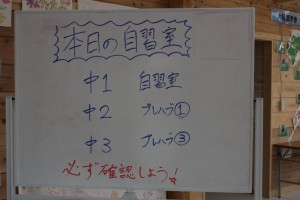 本日の自習室
中1 自習室
中2 プレハブ①
中3 プレハブ③
必ず確認しよう!